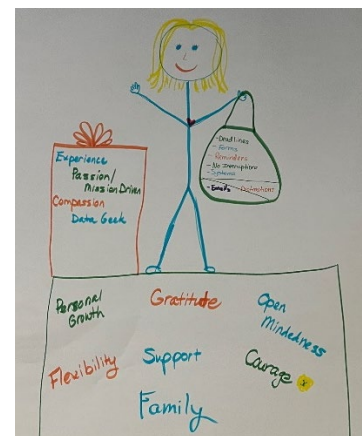 Experience
Passion/
Mission Driven
Compassion
Data Geek
- Deadlines
- Forms
- Reminders
- No Interruptions
- Systems
- Emails Distractions
Personal
Growth
Gratitude
Open
Mindedness
Flexibility
Support
Courage
Family